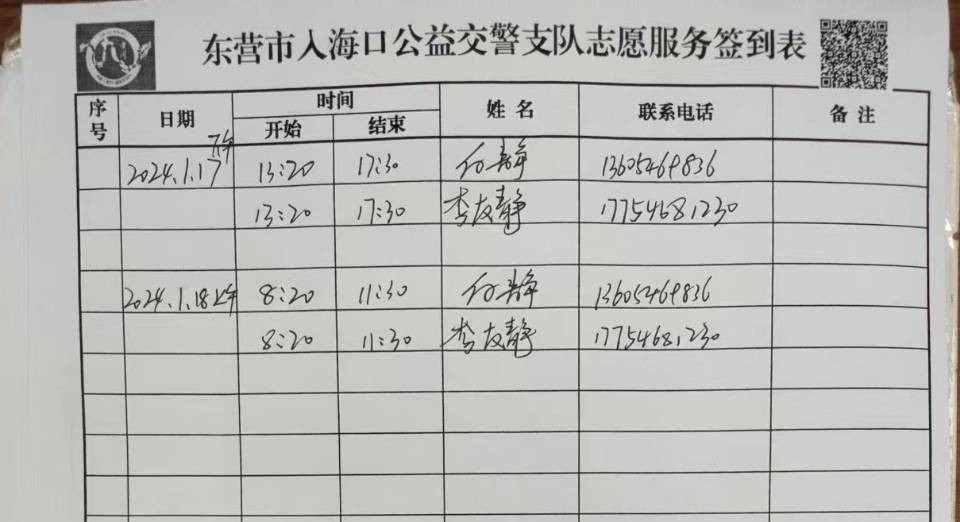 东营市入海口公益交警支队志愿服务签到表
序号 日期 时间 姓名 联系电话 备注
开始 结束
2024.1.17下午 13:20 17:30 付静 13605469836
13:20 17:30 李友静 17754681230
2024.1.18上午 8:20 11:30 付静 13605469836
8:20 11:30 李友静 17754681230